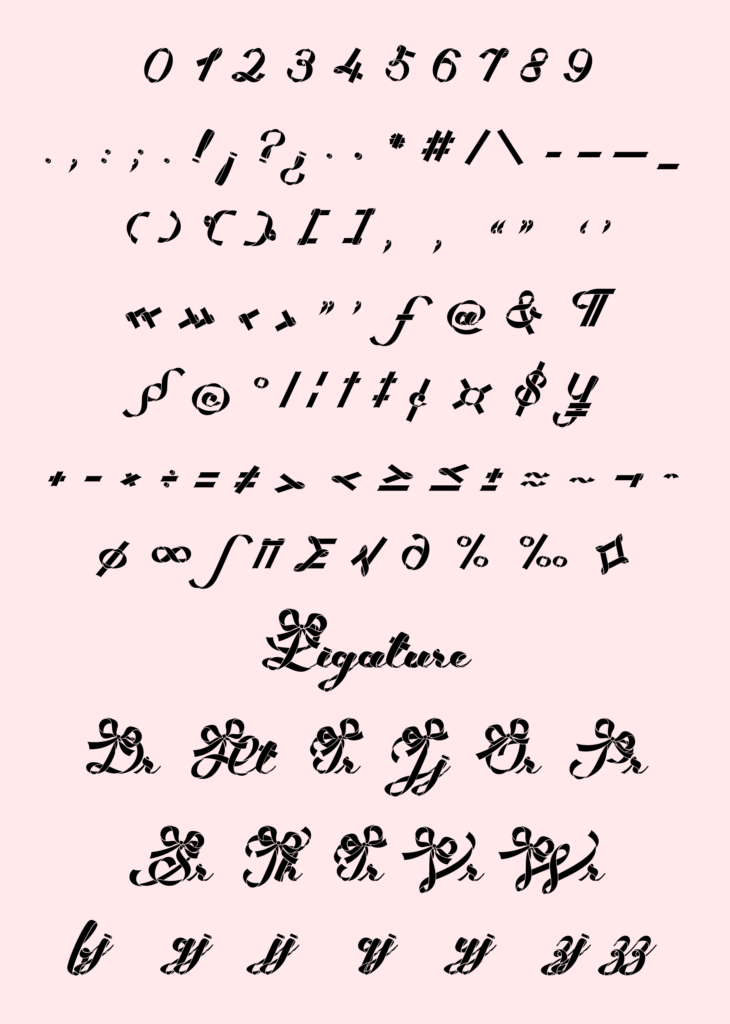 0 1 2 3 4 5 6 7 8 9
. , : ; . ! ¡ ? ¿ · · * # / \ - – — _
( ) { } [ ] ‚ , “ ” ‘ ’
« » ‹ › " ' ƒ @ & ¶
§ © ° | ¦ † ‡ ¢ ¤ $ ¥
+ − × ÷ = ≠ > < ≥ ≤ ± ≈ ~ ¬ ^
ø ∞ ∫ ∏ ∑ √ ∂ % ‰ ◊
Ligature
Dr Ht Ir Jj Or Pr
Sr Th Tr Vr Wr
fj gj jj qj yj zj zz